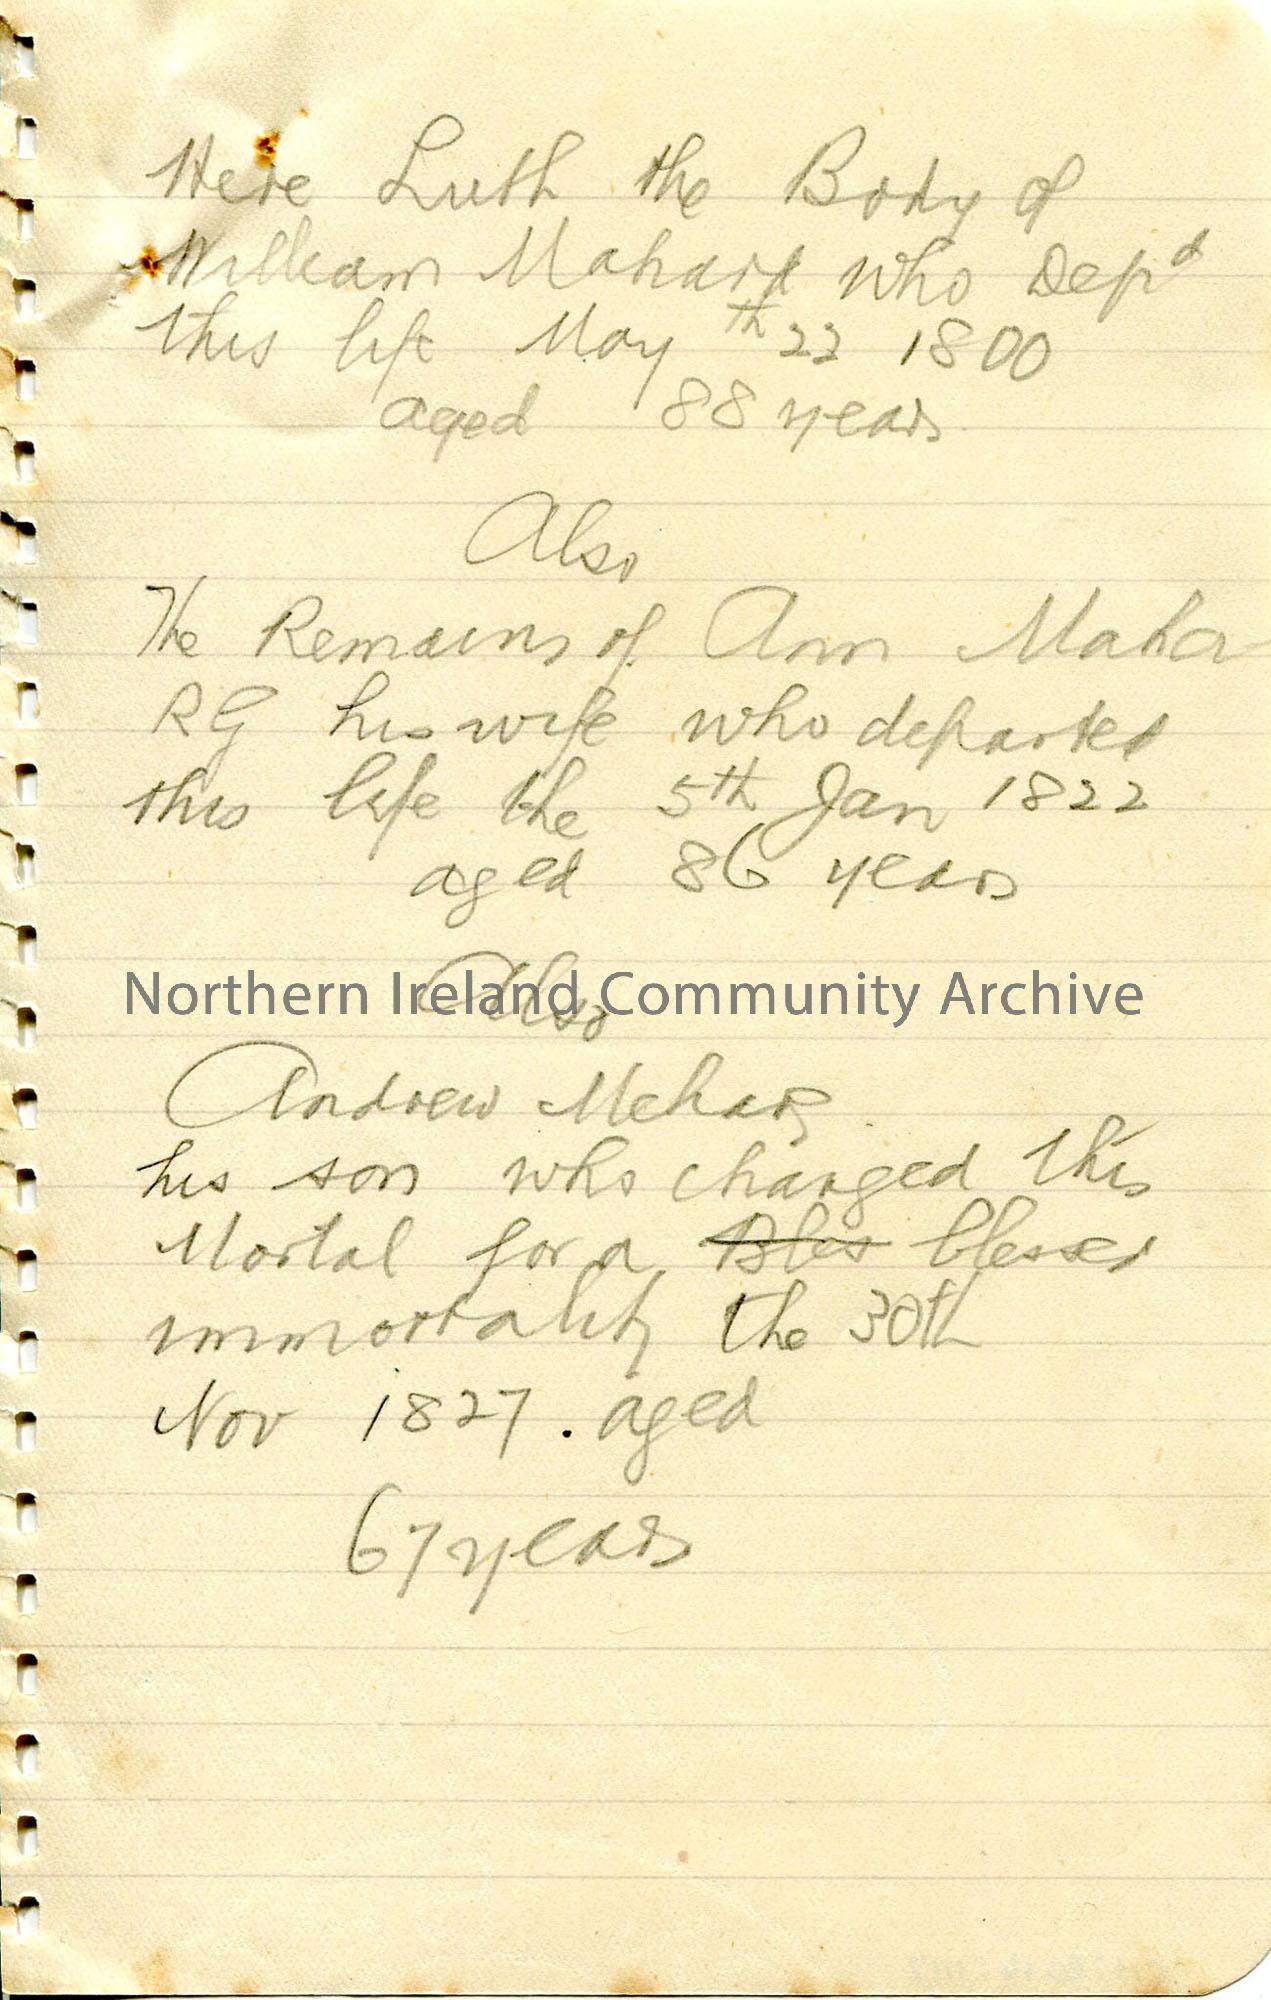 Here Lieth the Body of
William Mahard who Depd
this life May th 22 1800
aged 88 years
Also
The Remains of Ann Maha
RG his wife who departed
this life the 5th Jan 1822
aged 86 years
Also
Northern Ireland Community Archive
Andrew Meharg
his son who changed this
Mortal for a Bles blessed
immortality the 30th
Nov 1827. aged
67 years